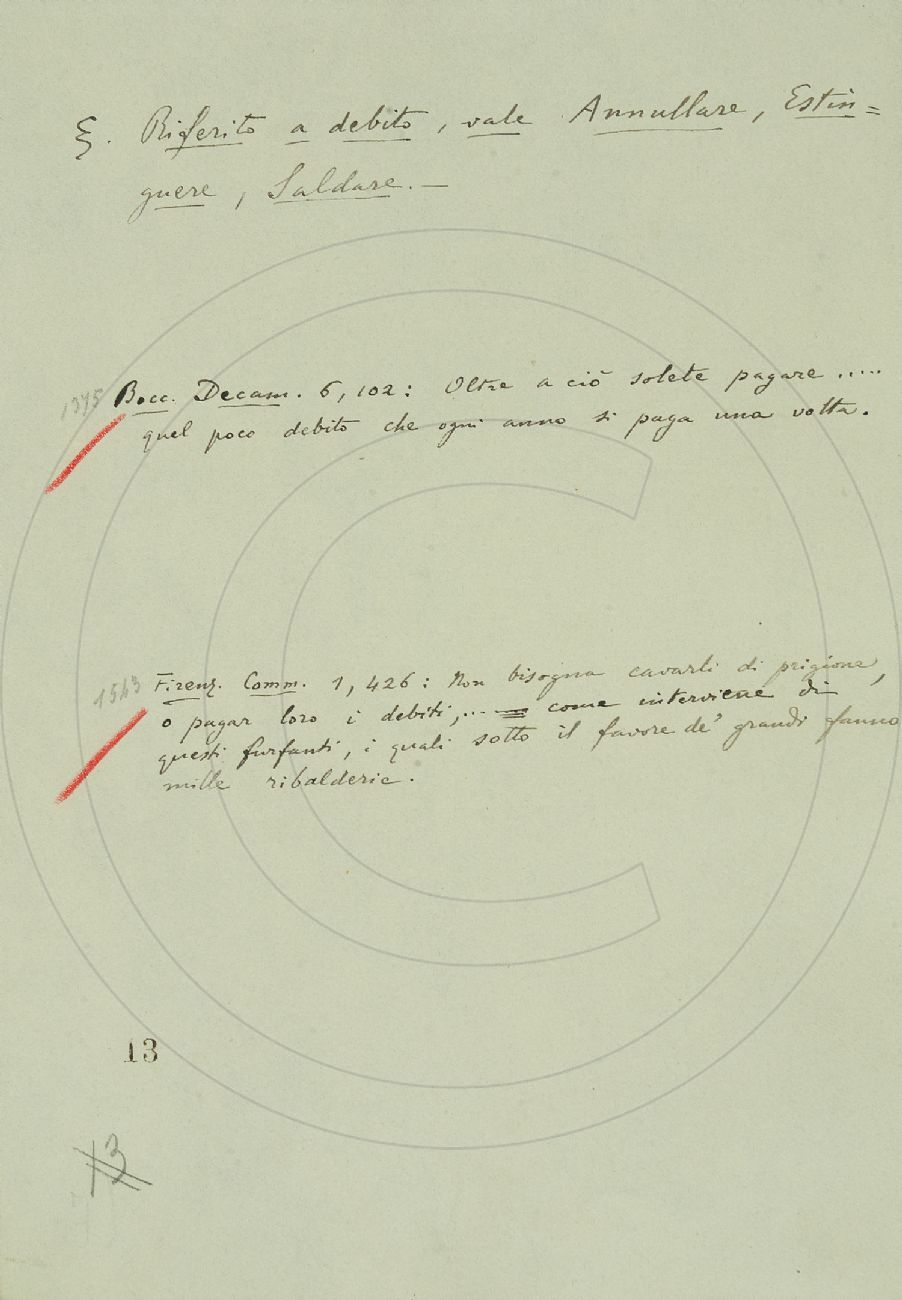 §. Riferito a debito, vale Annullare, Estin=
guere, Saldare. —
1375 Bocc. Decam. 6, 102: Oltre a ciò solete pagare .....
quel poco debito che ogni anno si paga una volta.
1543 Firenz. Comm. 1, 426: Non bisogna cavarli di prigione,
o pagar loro i debiti,... come interviene di
questi furfanti, i quali sotto il favore de' grandi fanno
mille ribalderie.
13
13